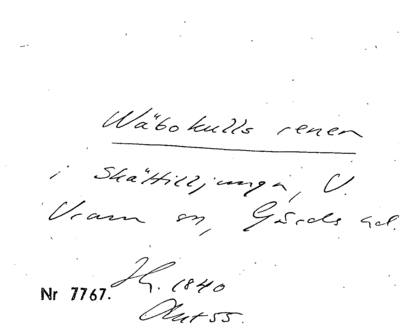 Wäbokulls renen
i Skättilljunga, V.
Vram sn, Gärds hd.
Hg. 1840
Nr 7767.
Akt 55.